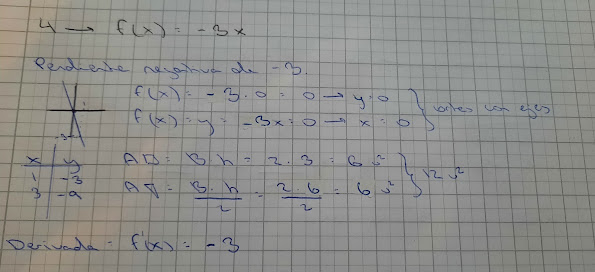 4 → f(x) = -3x
Pendiente negativa de -3.
f(x) = -3·0 = 0 → y=0
f(x) = y = -3x = 0 → x = 0 } cortes con ejes
-3
x | y
1 | -3
3 | -9
A□ = B·h = 2·3 = 6 u²
A▽ = B·h/2 = 2·6/2 = 6 u² } 12 u²
Derivada = f'(x) = -3